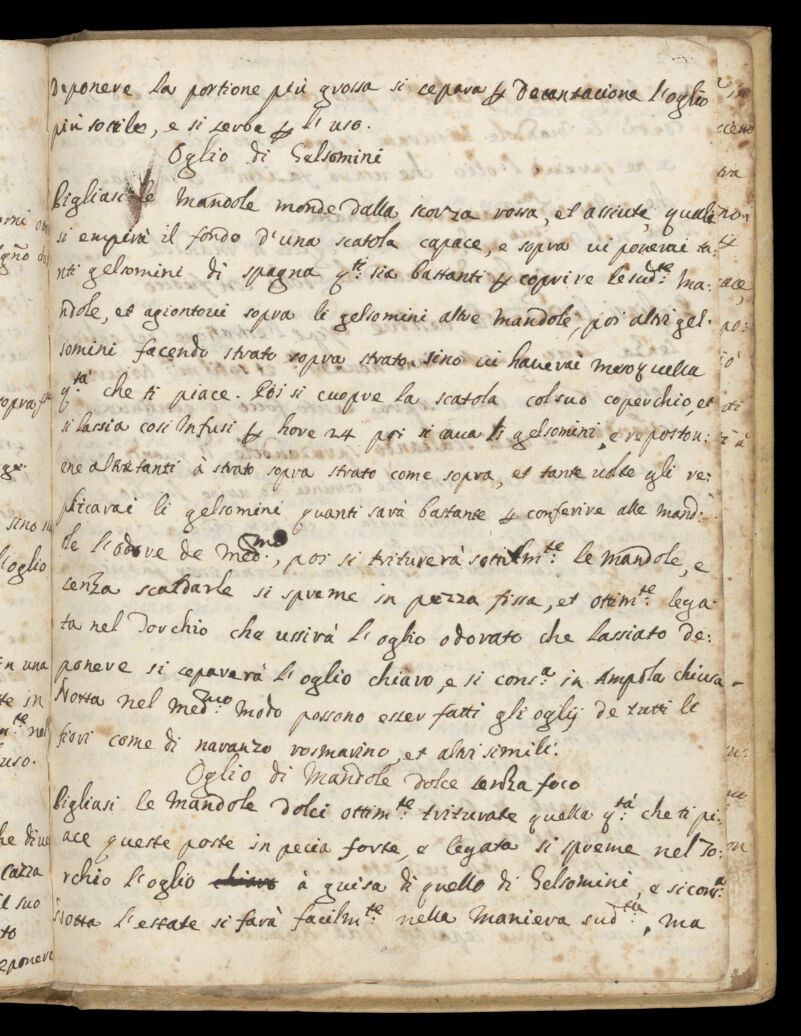 deponere la portione più grossa si cepara p Decantacione l'oglio
più sottile, e si serba p l'uso.
Oglio di Gelsomini
Pigliasi le Mandole monde dalla scorza rossa, et assiute, quale
si empirà il fondo d'una scatola capace, e sopra ui ponerai ta:
nti gelsomini di spagna q.ti sia bastanti p coprire le sud.te Ma:
ndole, et agiontoui sopra li gelsomini altre Mandole, poi altri gel:
somini facendo strato sopra strato sino ui hauerai messo quella
q.tà che ti piace. Poi si cuopre la scatola col suo coperchio, et
si lassia così Infusi p hore 24 poi si caua li gelsomini, e repostou:
ene altretanti à strato sopra strato come sopra, et tante uolte gli re:
plicarai li gelsomini quanti sarà bastante p conferire alle Mand:
le l'odore de med.mo, poi si triturerà sottilm.te le Mandole, e
senza scaldarle si spreme in pezza fissa, et ottim.te lega
ta nel Torchio che ussirà l'oglio odorato che lassiato de:
ponere si ceparerà l'oglio chiaro, e si cons.a in Ampola chiusa
Notta nel med.mo modo possono esser fatti gli oglij de tutti li
fiori come di naranzo rosmarino, et altri simili.
Oglio di Mandole dolce senza foco
Pigliasi le Mandole dolci ottim.te triturate quella q.tà che ti pi:
ace queste poste in pecia forte, e legata si spreme nel To:
rchio l'oglio chiaro à guisa di quello di Gelsomini, e si cons.a
Notta l'estate si farà facilm.te nella Maniera sud.ta, ma